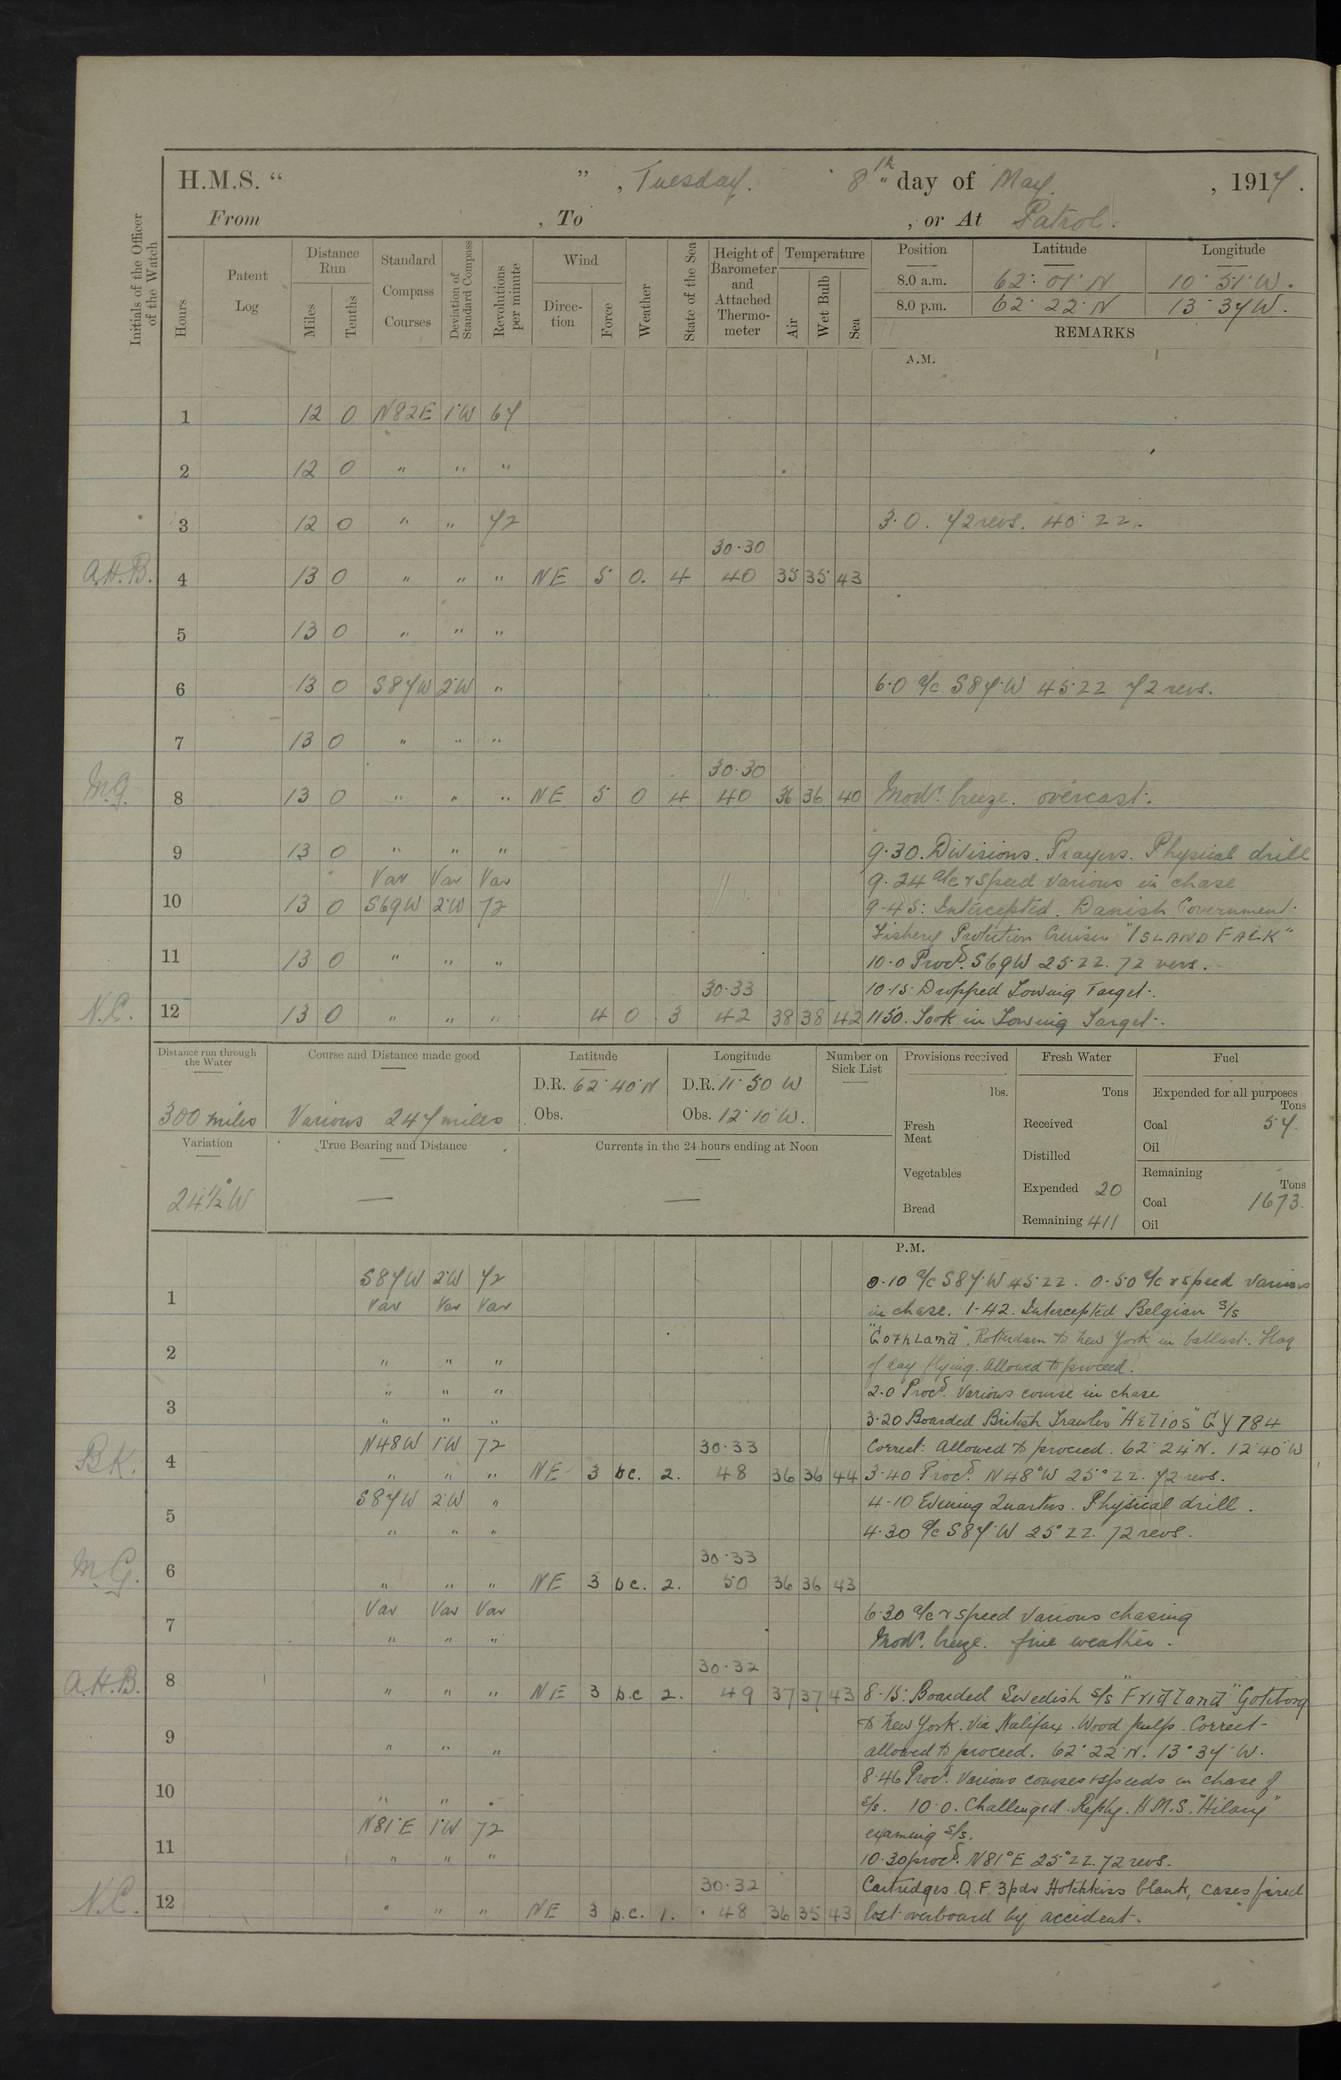 H.M.S. “ ” , Tuesday. 8th day of May , 1917.
From , To , or At Patrol.
Initials of the Officer of the Watch
Hours
Patent Log
Distance Run
Miles
Tenths
Standard Compass Courses
Deviation of Standard Compass
Revolutions per minute
Wind
Direction
Force
Weather
State of the Sea
Height of Barometer and Attached Thermometer
Temperature
Air
Wet Bulb
Sea
Position Latitude Longitude
8.0 a.m. 62° 01' N 10° 51' W.
8.0 p.m. 62° 22' N 13° 37' W.
REMARKS
A.M.
1 12 0 N82E 1°W 67
2 12 0 " " "
3 12 0 " " 72 3.0. 72 revs. 40° ZZ.
30.30
A.H.B. 4 13 0 " " " NE 5 0. 4 40 35 35 43
5 13 0 " " "
6 13 0 S87W 2°W " 6.0 a/c S87°W 45° ZZ 72 revs.
7 13 0 " " "
30.30
M.G. 8 13 0 " " " NE 5 0 4 40 36 36 40 Modt. breeze. overcast.
9 13 0 " " " 9.30. Divisions. Prayers. Physical drill
Var Var Var 9.24 a/c & speed various in chase
10 13 0 S69W 2°W 72 9.45: Intercepted. Danish Government
Fishery Protection Cruiser "ISLAND FALK"
11 13 0 " " " 10.0 Procd. S69W 25° ZZ. 72 revs.
30.33 10.15 Dropped Towing Target.
N.C. 12 13 0 " " " 4 0 3 42 38 38 42 1150. Took in Towing Target.
Distance run through the Water
300 miles
Course and Distance made good
Various 247 miles
Latitude
D.R. 62° 40' N
Obs.
Longitude
D.R. 11° 50 W
Obs. 12° 10' W.
Number on Sick List
Provisions received
lbs.
Fresh Meat
Vegetables
Bread
Fresh Water
Tons
Received
Distilled
Expended 20
Remaining 411
Fuel
Expended for all purposes
Tons
Coal 57.
Oil
Remaining
Tons
Coal 1673.
Oil
Variation
24½° W
True Bearing and Distance
—
Currents in the 24 hours ending at Noon
—
P.M.
S87W 2°W 72 0.10 a/c S87°W 45° ZZ. 0.50 a/c & speed various
1 Var Var Var in chase. 1.42. Intercepted Belgian S/S
"Gothland". Rotterdam to New York in ballast. Flag
2 " " " of day flying. Allowed to proceed.
" " " 2.0 Procd. Various course in chase
3 " " " 3.20 Boarded British Trawler "HELIOS" GY 784
N48W 1°W 72 30.33 Correct: Allowed to proceed. 62° 24' N. 12° 40' W
B.K. 4 " " " NE 3 bc. 2. 48 36 36 44 3.40 Procd. N48°W 25° ZZ. 72 revs.
S87W 2°W " 4.10 Evening Quarters. Physical drill.
5 " " " 4.30 a/c S87°W 25° ZZ. 72 revs.
30.33
M.G. 6 " " " NE 3 bc. 2. 50 36 36 43
Var Var Var 6.30 a/c & speed various chasing
7 " " " Modt. breeze. fine weather.
30.32
A.H.B. 8 " " " NE 3 b.c 2. 49 37 37 43 8.15: Boarded Swedish S/S "Fridland" Goteborg
to New York. via Halifax. Wood pulp. Correct-
9 " " " allowed to proceed. 62° 22' N. 13° 37' W.
8.46 Procd. Various courses & speeds in chase of
10 " " " S/S. 10.0. Challenged. Reply. H.M.S. "Hilary"
N81°E 1°W 72 examing S/S.
11 " " " 10.30 procd. N81°E 25° ZZ. 72 revs.
30.32 Cartridges Q.F. 3pdr Hotchkiss blank, cases fired
N.C. 12 " " " NE 3 b.c. 1. 48 36 35 43 lost overboard by accident.